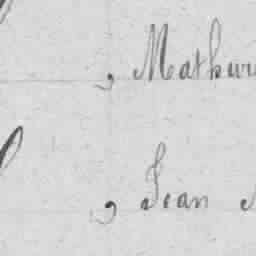 , Mathuri
, Jean